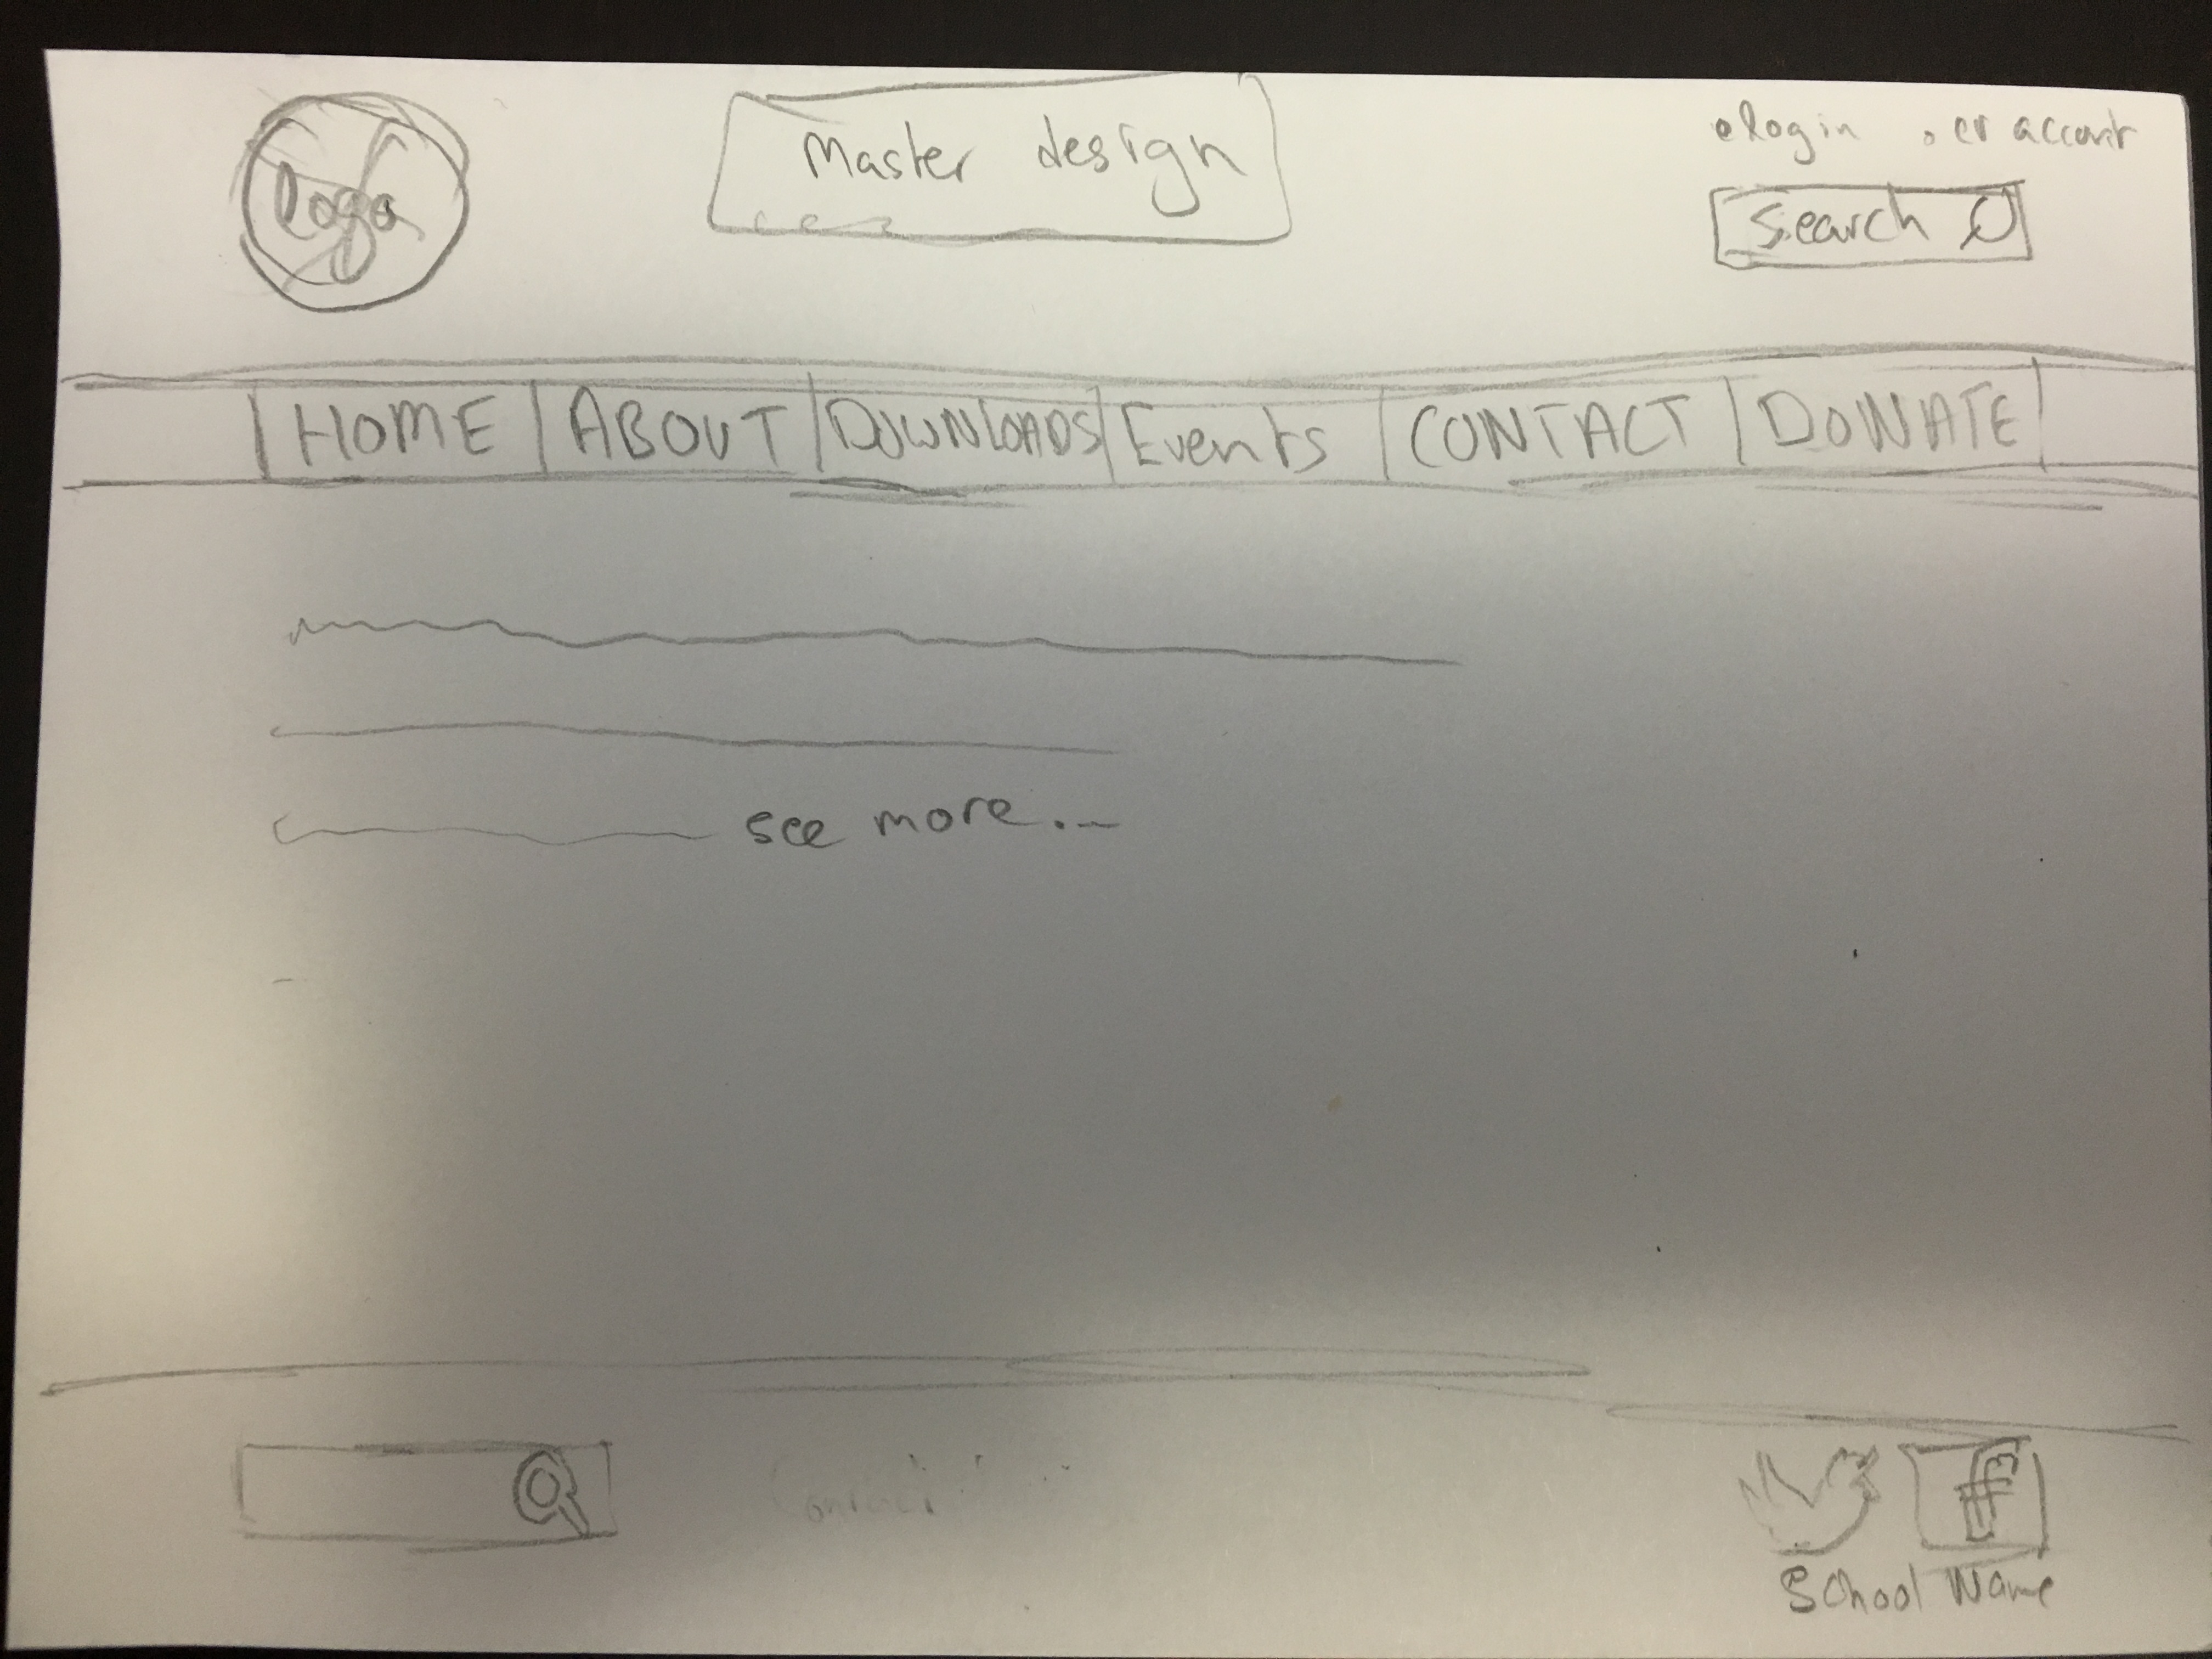 logo
Master design
login . cr account
Search
HOME | ABOUT | DOWNLOADS | Events | CONTACT | DONATE
see more...
f
School Name